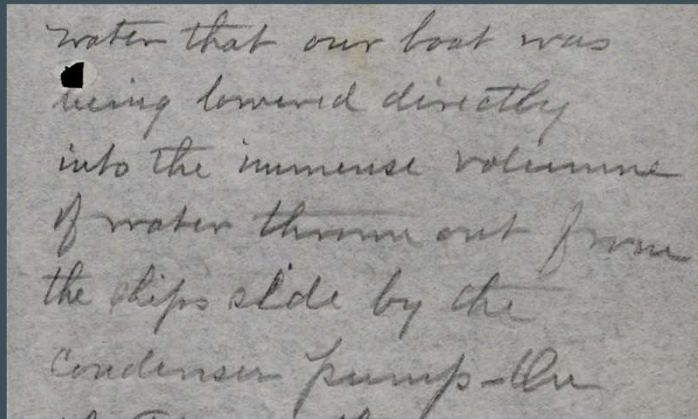 water that our boat was
being lowered directly
into the immense volumne
of water thrown out from
the ships side by the
condenser pump-the